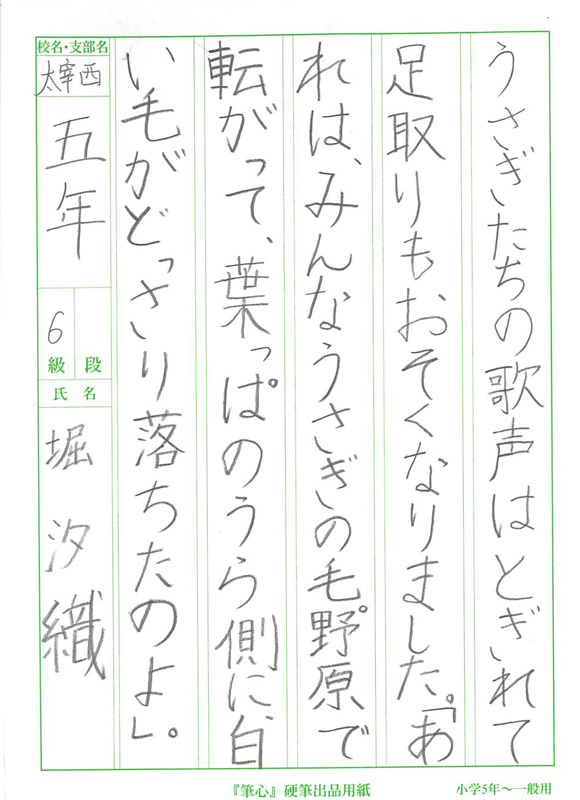 うさぎたちの歌声はとぎれて
足取りもおそくなりました。「あ
れは、みんなうさぎの毛。野原で
転がって、葉っぱのうら側に、白
い毛がどっさり落ちたのよ」。
校名・支部名
太宰西
五年
6
級 段
氏名
堀 汐織
『筆心』硬筆出品用紙
小学5年～一般用